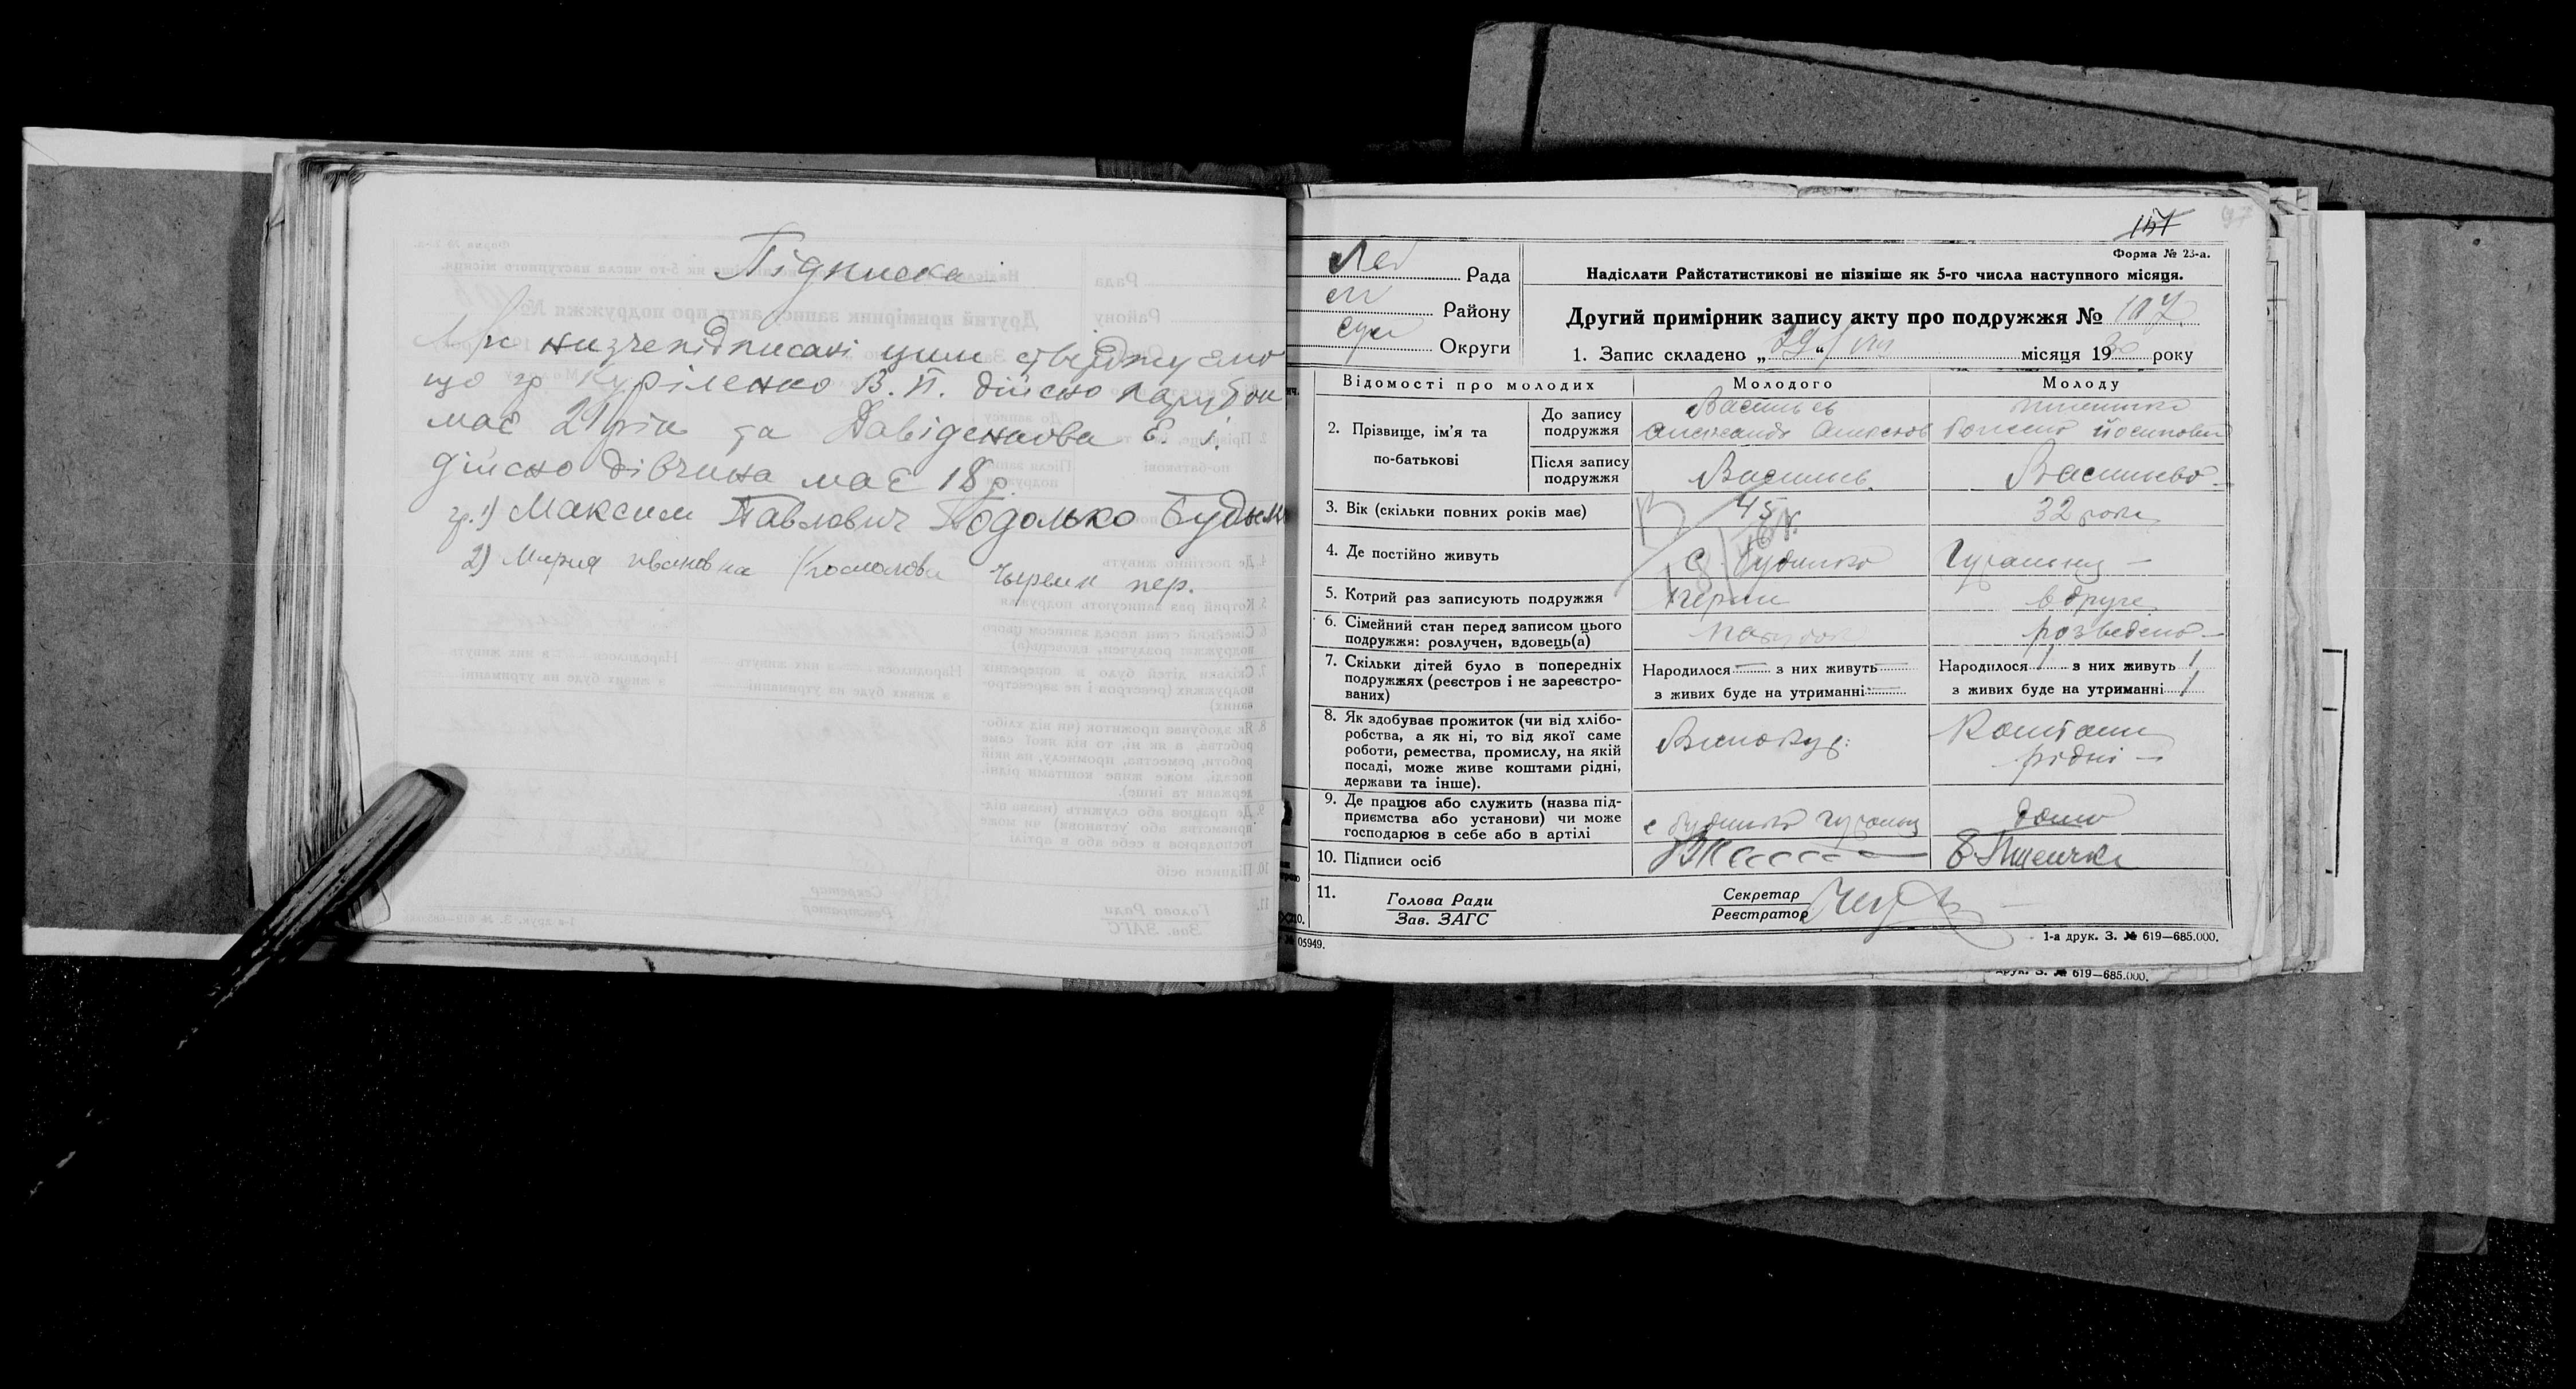 Підписка
Ми низчепідписані цим стверджуємо
що гр Куріленко В. П. дійсно парубок
має 21 рік та Давіденкова Є. І.
дійсно дівчина має 18 р.
гр. 1) Максим Павлович Подолько
2) Мария Ивановна пер.
157
97
Форма № 23-а.
Леб Рада
Району
Сум Округи
Надіслати Райстатистикові не пізніше як 5-го числа наступного місяця.
Другий примірник запису акту про подружжя № 107
1. Запис складено „29“ VIII місяця 1930 року
Відомості про молодих Молодого Молоду
2. Прізвище, ім'я та по-батькові
До запису подружжя
Васильєв
Александр
Йосиповн
Після запису подружжя
Васильєв
Васильєва
3. Вік (скільки повних років має) 45 32 роки
4. Де постійно живуть с. Будилка Гуральня
5. Котрий раз записують подружжя перши вдруге
6. Сімейний стан перед записом цього подружжя: розлучен, вдовець(а) парубок розведена
7. Скільки дітей було в попередніх подружжях (реєстров і не зареєстрованих)
Народилося — з них живуть —
з живих буде на утриманні —
Народилося 1 з них живуть 1
з живих буде на утриманні 1
8. Як здобуває прожиток (чи від хліборобства, а як ні, то від якої саме роботи, ремества, промислу, на якій посаді, може живе коштами рідні, держави та інше).
Винокур
Коштами рідні
9. Де працює або служить (назва підприємства або установи) чи може господарює в себе або в артілі
с Будилка Гуральня
дома
10. Підписи осіб
11. Голова Ради
Зав. ЗАГС
Секретар
Реєстратор
05949.
1-а друк. З. № 619—685.000.
друк. З. № 619—685.000.